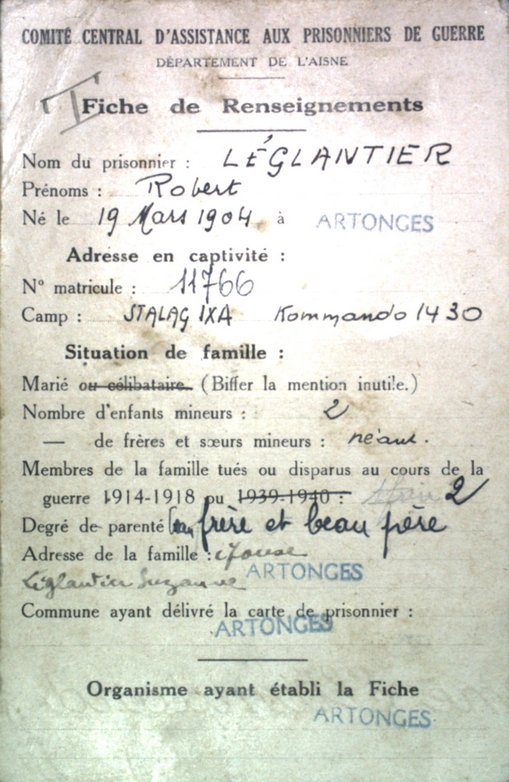 COMITÉ CENTRAL D'ASSISTANCE AUX PRISONNIERS DE GUERRE
DÉPARTEMENT DE L'AISNE
Fiche de Renseignements
Nom du prisonnier : LÉGLANTIER
Prénoms : Robert
Né le 19 Mars 1904 à ARTONGES
Adresse en captivité :
N° matricule : 11766
Camp : STALAG IXA Kommando 1430
Situation de famille :
Marié ou célibataire. (Biffer la mention inutile.)
Nombre d'enfants mineurs : 2
— de frères et sœurs mineurs : néant.
Membres de la famille tués ou disparus au cours de la
guerre 1914-1918 ou 1939-1940 : 2
Degré de parenté beau frère et beau père
Adresse de la famille :
Léglantier Suzanne ARTONGES
Commune ayant délivré la carte de prisonnier :
ARTONGES
Organisme ayant établi la Fiche
ARTONGES